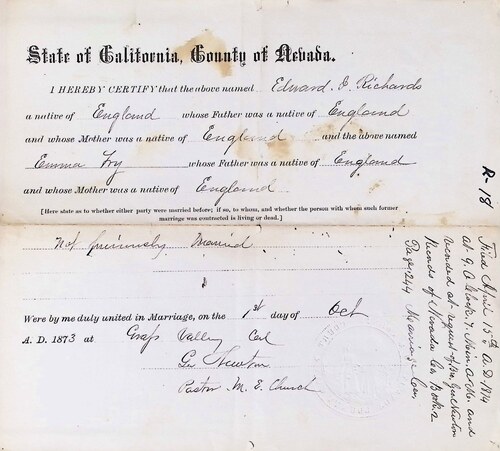 State of California, County of Nevada.
I HEREBY CERTIFY that the above named Edward J Richards
a native of England whose Father was a native of England
and whose Mother was a native of England and the above named
Emma Fry whose Father was a native of England
and whose Mother was a native of England
[Here state as to whether either party were married before; if so, to whom, and whether the person with whom such former
marriage was contracted is living or dead.]
Not previously Married
Were by me duly united in Marriage, on the 1st day of Oct
A. D. 1873 at Grass Valley Cal
Geo Newton
Pastor M. E. Church
R-18
Filed April 15th A.D. 1874
at 9 O'clock, Min. A.M. and
recorded at request of Geo Newton
Records of Nevada Co Book 2
Page 244 Marriage